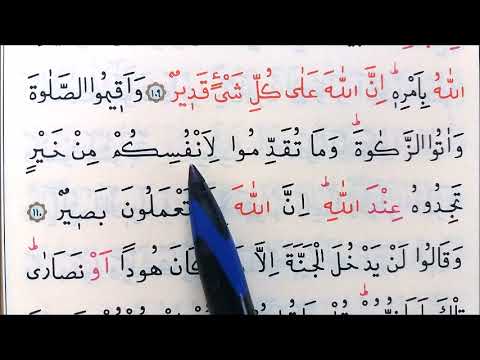 اللّٰهُ بِاَمْرِهٖۜ اِنَّ اللّٰهَ عَلٰى كُلِّ شَيْءٍ قَد۪يرٌ ١٠٩ وَاَق۪يمُوا الصَّلٰوةَ
وَاٰتُوا الزَّكٰوةَۜ وَمَا تُقَدِّمُوا لِاَنْفُسِكُمْ مِنْ خَيْرٍ
تَجِدُوهُ عِنْدَ اللّٰهِۜ اِنَّ اللّٰهَ تَعْمَلُونَ بَص۪يرٌ ١١٠
وَقَالُوا لَنْ يَدْخُلَ الْجَنَّةَ اِلَّا كَانَ هُودًا اَوْ نَصَارٰىۜ